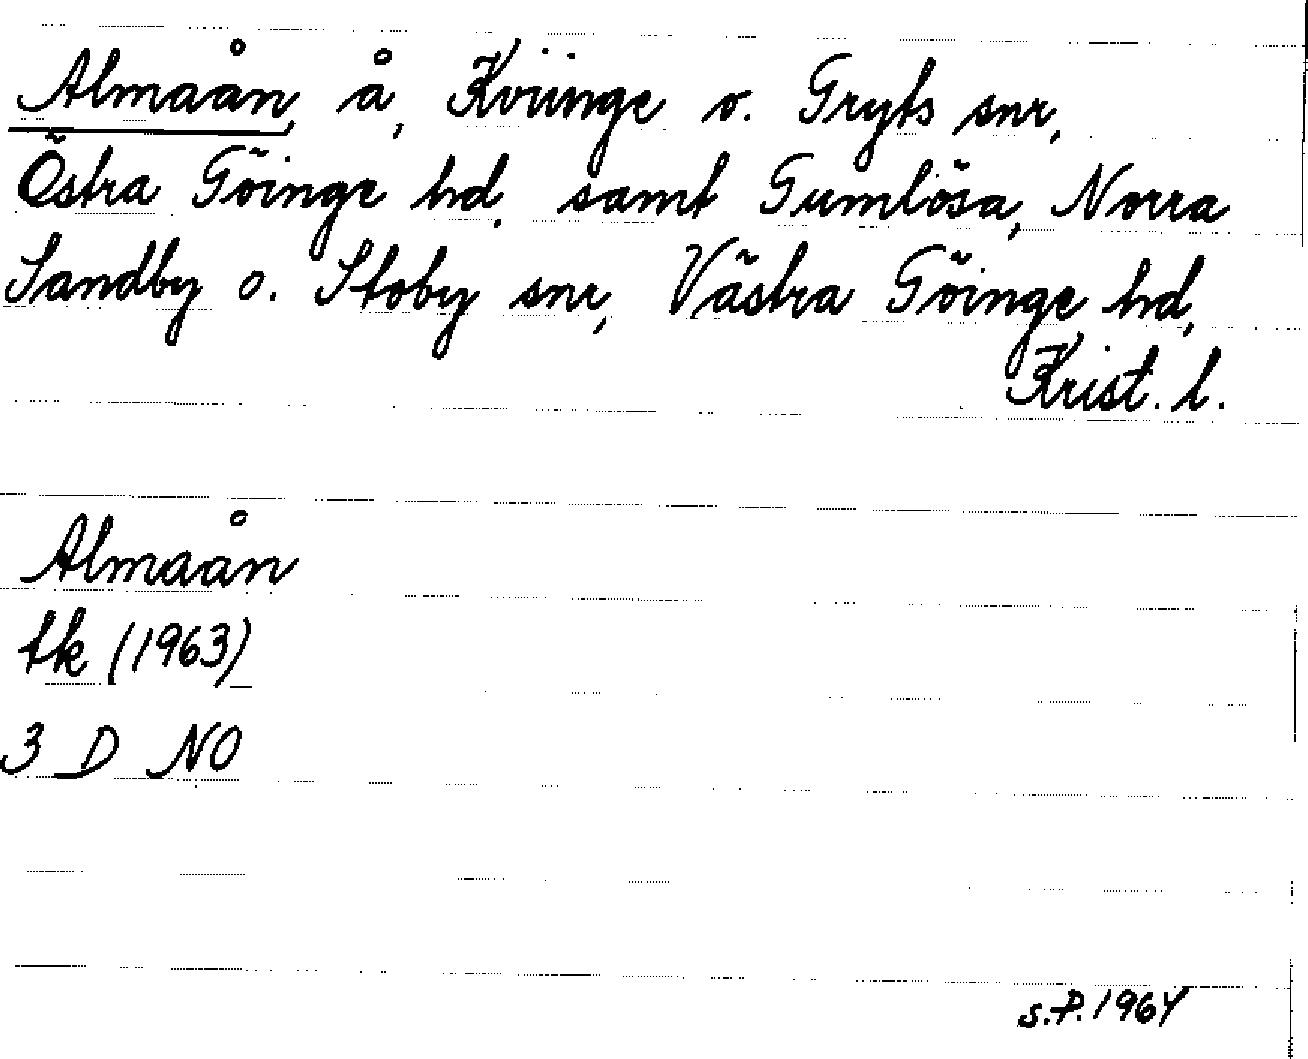 Almaån, å, Kviinge o. Gryts snr,
Östra Göinge hd, samt Gumlösa, Norra
Sandby o. Stoby snr, Västra Göinge hd,
Krist. l.
Almaån
tk (1963)
3 D NO
S.P. 1964